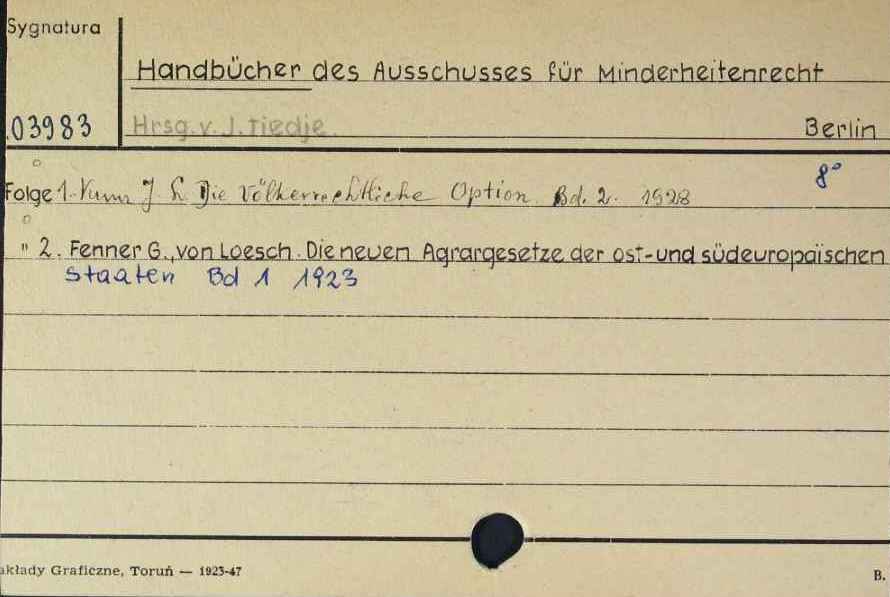 Sygnatura
Handbücher des Ausschusses für Minderheitenrecht
03983 Hrsg. v. J. Tiedje Berlin
8°
Folge 1. Die Völkerrechtliche Option Bd. 2. 1928
" 2. Fenner G., von Loesch. Die neuen Agrargesetze der ost- und südeuropäischen
Staaten Bd 1 1923
akłady Graficzne, Toruń — 1923-47
B.